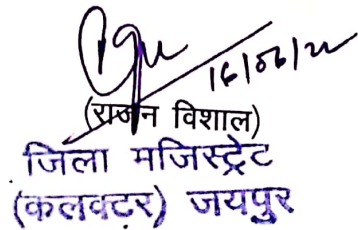 16/06/22
(राजन विशाल)
जिला मजिस्ट्रेट
(कलक्टर) जयपुर